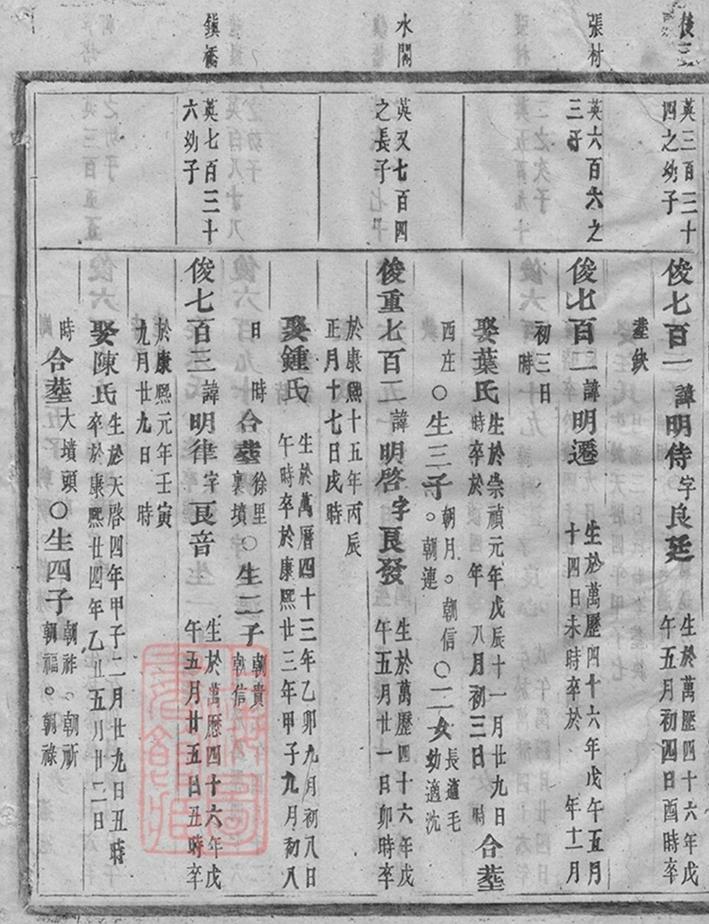 張村
水閣
鎮橋
英三百三十
四之幼子
英六百六之
三子
英又七百四
之長子
英七百三十
六幼子
俊七百一諱明侍字良廷
生於萬歷四十六年戊
午五月初四日酉時卒
墓缺
俊七百二諱明遷
生於萬歷四十六年戊午五月
十四日未時卒於 年十二月
初三日
時
娶葉氏
生於崇禎元年戊辰十一月廿九日
時卒於 年八月初三日 時
合塟
西庄○生三子
朝月○朝信
○朝連
○二女
長適毛
幼適沈
俊重七百二諱明啓字良發
生於萬歷四十六年戊
午五月廿一日卯時卒
於康熙十五年丙辰
正月十七日戌時
娶鍾氏
生於萬曆四十三年乙卯九月初八日
午時卒於康熙廿三年甲子九月初八
日 時合塟
徐里
裏墳
○生二子
朝貴
朝信
俊七百三諱明律字良音
生於萬歷四十六年戊
午五月廿五日丑時卒
於康熙元年壬寅
九月廿九日 時
娶陳氏
生於天啓四年甲子二月廿九日丑時
卒於康熙廿四年乙丑五月廿二日
時合塟大墳頭○生四子
朝祚○朝祈
朝福○朝祿